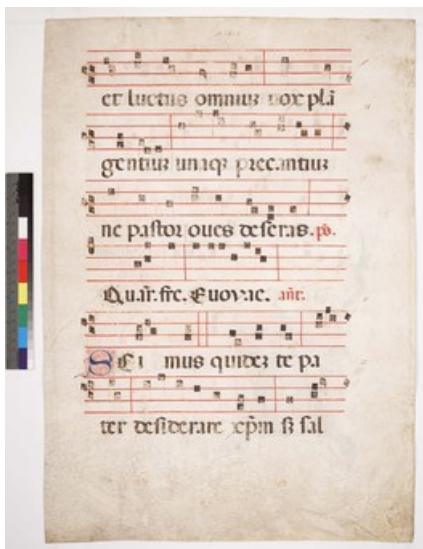 et luctus omniuȝ uox plā
gentiuȝ unaqȝ precantiuȝ
ne pastor oues deseras. ps.
Quār. frē. Euovae. añt.
SCi mus quideȝ te pa
ter desiderare xp̄m sȝ sal